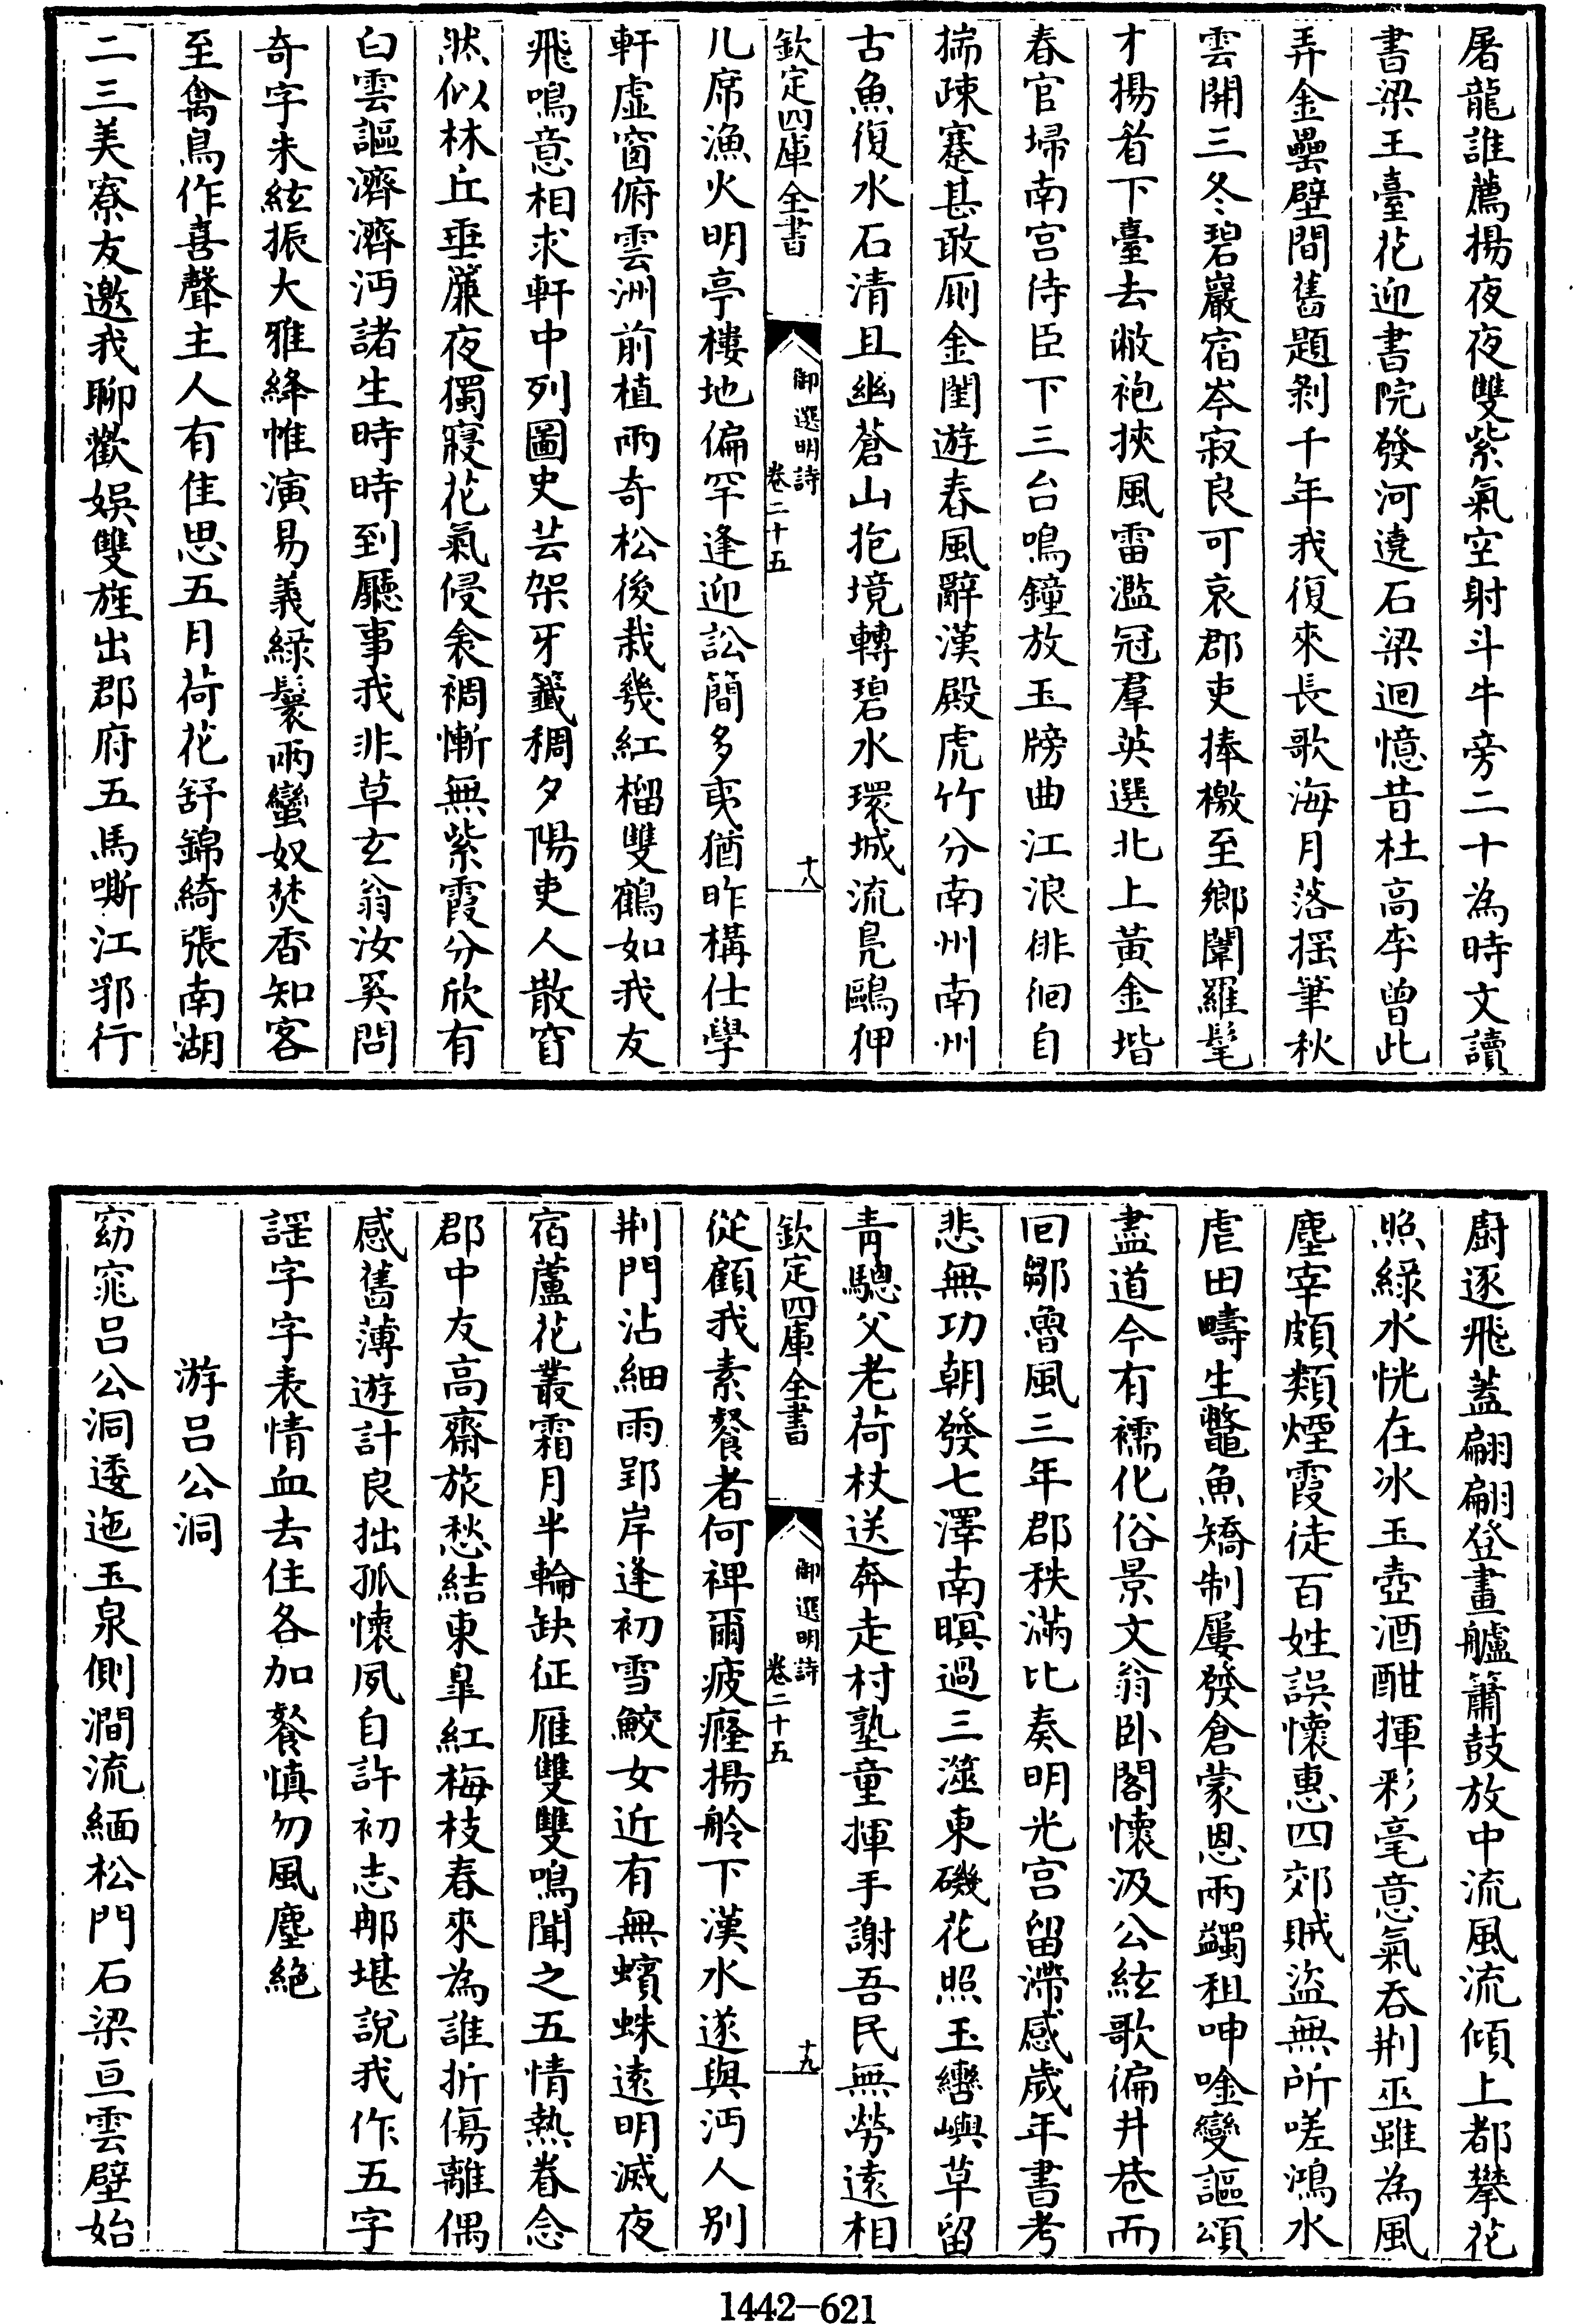 屠龍誰薦揚夜夜雙紫氣空射斗牛旁二十為時文讀
書梁王臺花迎書院發河遶石梁迴憶昔杜高李曾此
弄金罍壁間舊題剝千年我復來長歌海月落揺筆秋
雲開三冬碧巖宿岑寂良可哀郡吏捧檄至鄉闈羅髦
才揚眉下臺去敝袍挾風雷濫冠羣英選北上黃金堦
春官埽南宫侍臣下三台鳴鐘放玉牓曲江浪徘徊自
揣疎蹇甚敢厠金閨遊春風辭漢殿虎竹分南州南州
古魚復水石清且幽蒼山抱境轉碧水環城流鳧鷗狎
欽定四庫全書
御選明詩
卷二十五
十八
几席漁火明亭樓地偏罕逢迎訟簡多夷猶昨構仕學
軒虛窗俯雲洲前植兩奇松後栽幾紅榴雙鶴如我友
飛鳴意相求軒中列圖史芸架牙籤稠夕陽吏人散窅
然似林丘垂簾夜獨寢花氣侵衾裯慚無紫霞分欣有
白雲謳濟濟沔諸生時時到廳事我非草玄翁汝奚問
奇字朱絃振大雅絳帷演易義緑鬟兩蠻奴焚香知客
至禽鳥作喜聲主人有佳思五月荷花舒錦綺張南湖
二三美寮友邀我聊歡娛雙旌出郡府五馬嘶江郛行
厨逐飛蓋翩翩登畫艫簫鼓放中流風流傾上都攀花
照綠水恍在冰玉壺酒酣揮彩毫意氣吞荆巫雖為風
塵宰頗類煙霞徒百姓誤懷惠四郊賊盜無所嗟鴻水
虐田疇生鼈魚矯制屢發倉蒙恩兩蠲租呻唫變謳頌
盡道今有襦化俗景文翁卧閣懷汲公絃歌徧井巷而
回鄒魯風三年郡秩滿比奏明光宫留滯感歲年書考
悲無功朝發七澤南暝過三澨東磯花照玉轡嶼草留
青驄父老荷杖送奔走村塾童揮手謝吾民無勞遠相
欽定四庫全書
御選明詩
卷二十五
十九
從顧我素餐者何裨爾疲癃揚舲下漢水遂與沔人别
荆門沾細雨郢岸逢初雪鮫女近有無蠙蛛遠明滅夜
宿蘆花叢霜月半輪缺征雁雙雙鳴聞之五情熱眷念
郡中友高齋旅愁結東臯紅梅枝春來為誰折傷離偶
感舊薄遊計良拙孤懷夙自許初志那堪說我作五字
謡字字表情血去住各加餐慎勿風塵絶
游呂公洞
窈窕呂公洞逶迤玉泉側澗流緬松門石梁亘雲壁始
1442-621